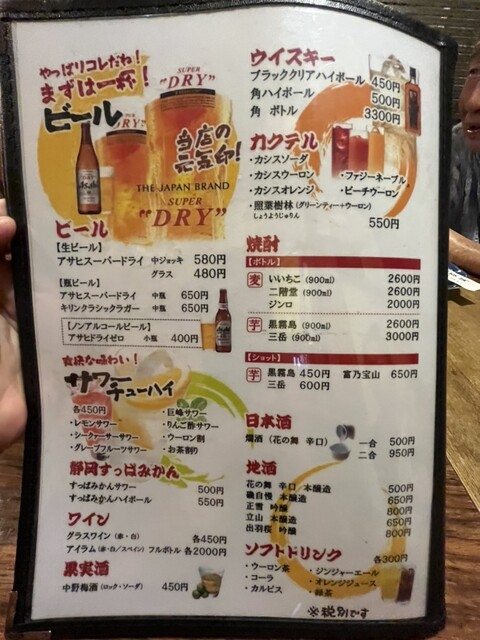 やっぱりコレだね!
まずは一杯!
ビール
SUPER
"DRY"
当店の
元気印!
THE JAPAN BRAND
SUPER
"DRY"
ビール
【生ビール】
アサヒスーパードライ 中ジョッキ 580円
グラス 480円
【瓶ビール】
アサヒスーパードライ 中瓶 650円
キリンクラシックラガー 中瓶 650円
【ノンアルコールビール】
アサヒドライゼロ 小瓶 400円
爽快な味わい!
サワー
チューハイ
各450円
・レモンサワー
・シークァーサーサワー
・グレープフルーツサワー
・巨峰サワー
・りんご酢サワー
・ウーロン割
・お茶割り
静岡すっぱみかん
すっぱみかんサワー 500円
すっぱみかんハイボール 550円
ワイン
グラスワイン(赤・白) 各450円
アイラム(赤・白/スペイン) フルボトル 各2000円
果実酒
中野梅酒(ロック・ソーダ) 450円
ウイスキー
ブラッククリアハイボール 450円
角ハイボール 500円
角 ボトル 3300円
カクテル
・カシスソーダ
・カシスウーロン ・ファジーネーブル
・カシスオレンジ ・ピーチウーロン
・照葉樹林(グリーンティー+ウーロン)
しょうようじゅりん
550円
焼酎
【ボトル】
麦 いいちこ(900ml) 2600円
二階堂(900ml) 2600円
ジンロ 2000円
芋 黒霧島(900ml) 2600円
三岳(900ml) 3000円
【ショット】
芋 黒霧島 450円 富乃宝山 650円
三岳 600円
日本酒
燗酒(花の舞 辛口) 一合 500円
二合 950円
地酒
花の舞 辛口 本醸造 500円
磯自慢 本醸造 650円
正雪 吟醸 800円
立山 本醸造 650円
出羽桜 吟醸 800円
ソフトドリンク 各300円
・ウーロン茶 ・ジンジャーエール
・コーラ ・オレンジジュース
・カルピス ・緑茶
※税別です